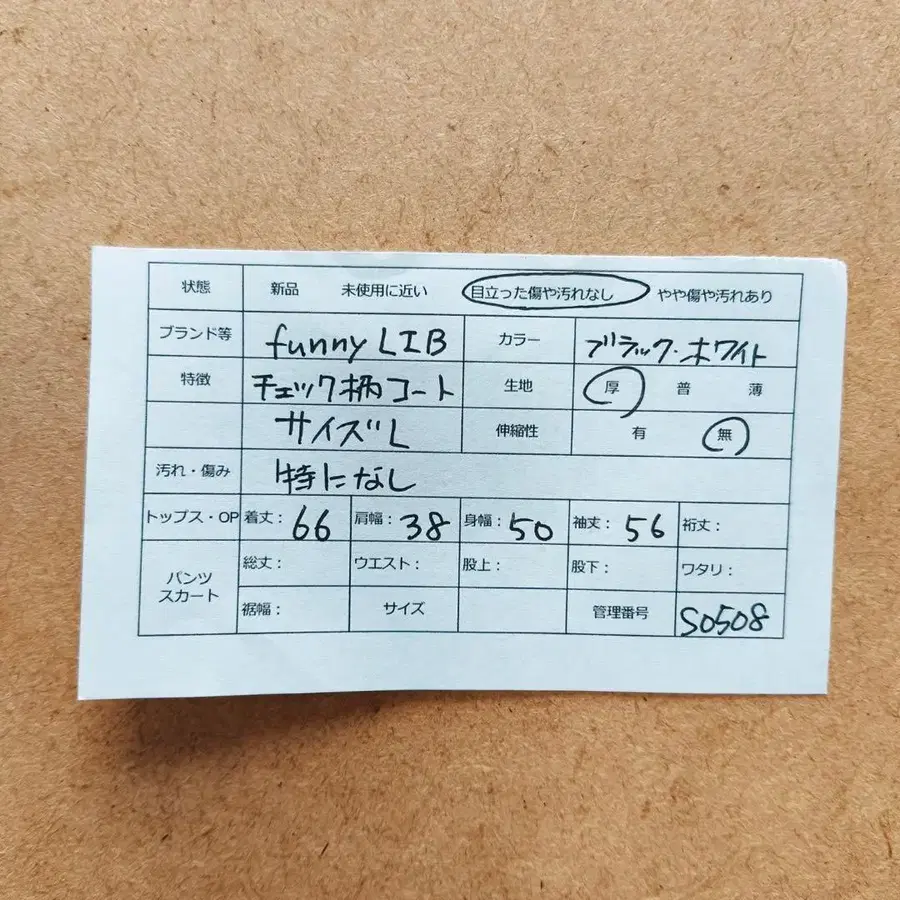 状態 新品 未使用に近い 目立った傷や汚れなし やや傷や汚れあり
ブランド等 funny LIB カラー ブラック・ホワイト
特徴 チェック柄コート 生地 厚 普 薄
サイズL 伸縮性 有 無
汚れ・傷み 特になし
トップス・OP 着丈： 66 肩幅： 38 身幅： 50 袖丈： 56 裄丈：
パンツ スカート 総丈： ウエスト： 股上： 股下： ワタリ：
裾幅： サイズ 管理番号 S0508